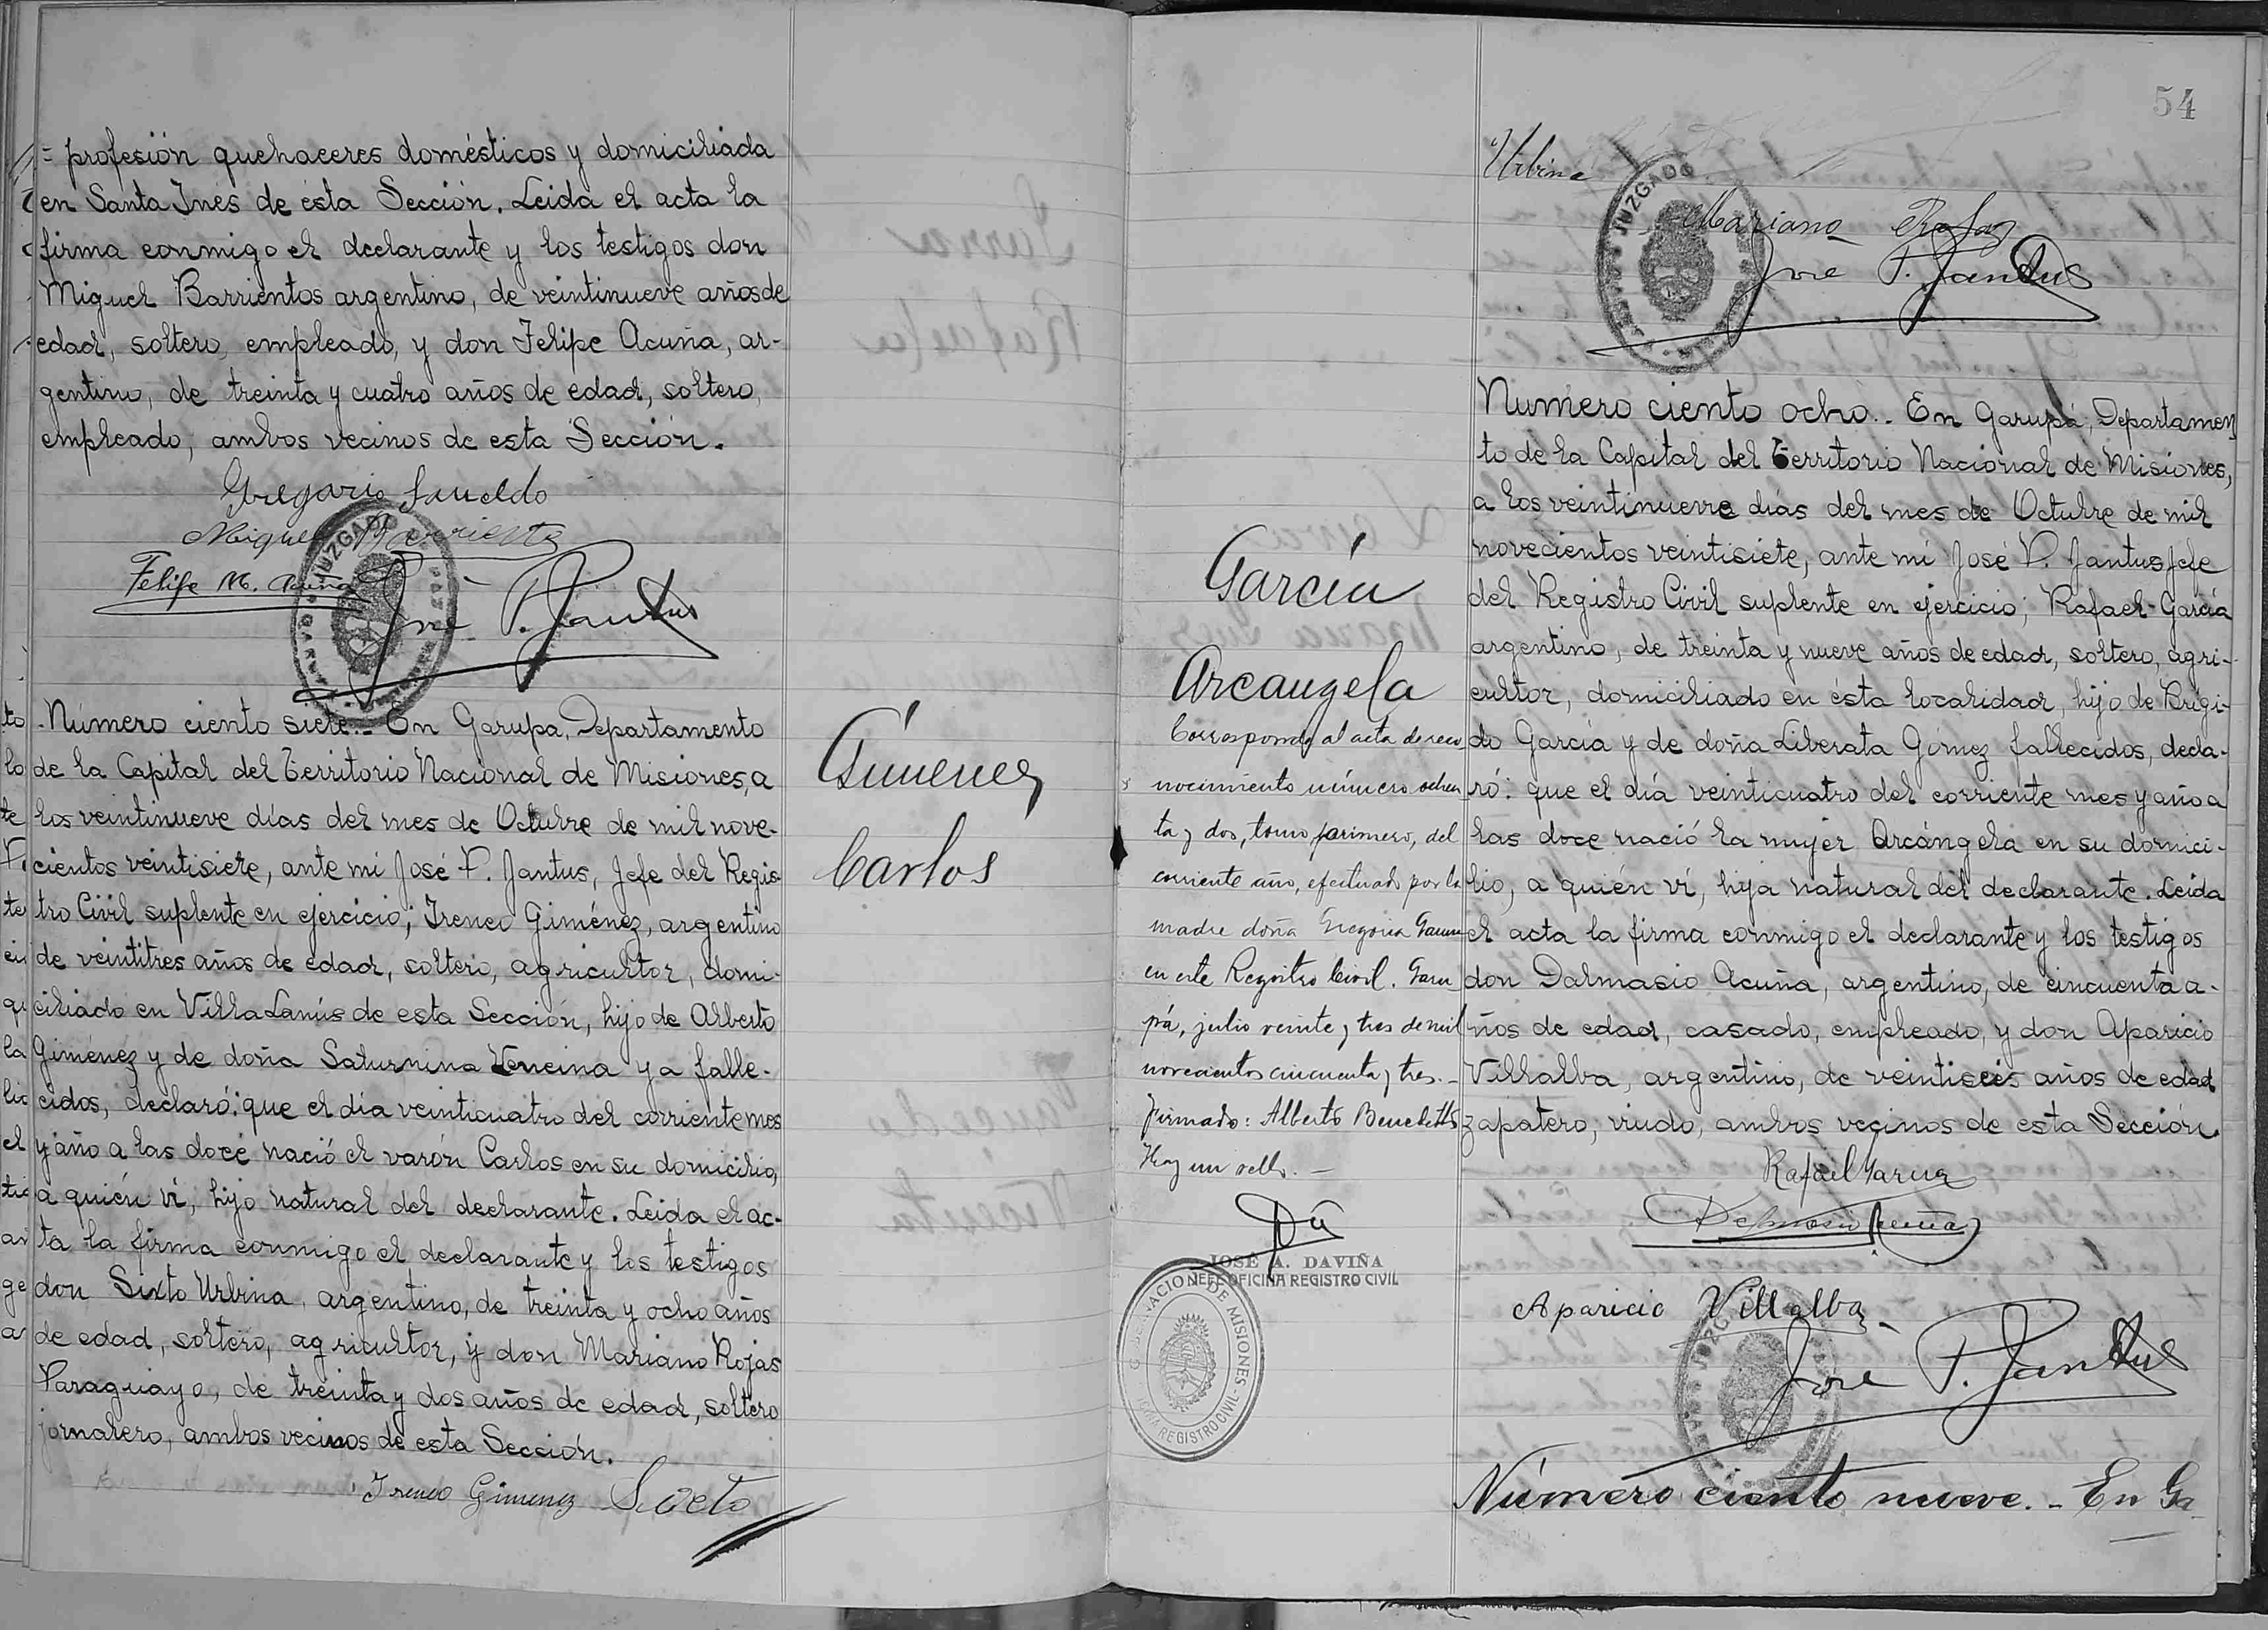 = profesión quehaceres domésticos y domiciliada
en Santa Inés de ésta Sección. Leida el acta la
firma conmigo el declarante y los testigos don
Miguel Barrientos argentino, de veintinueve años de
edad, soltero, empleado, y don Felipe Acuña, ar-
gentino, de treinta y cuatro años de edad, soltero,
empleado, ambos vecinos de esta Sección.
Gregorio
Miguel Barrientos
Felipe M. Acuña
José P. Jantus
JUZGADO
Número ciento siete.- En Garupa, Departamento
de la Capital del Territorio Nacional de Misiones, a
los veintinueve días del mes de Octubre de mil nove-
cientos veintisiete, ante mi José P. Jantus, Jefe del Regis
tro Civil suplente en ejercicio; Ireneo Giménez, argentino
de veintitres años de edad, soltero, agricultor, domi-
ciliado en Villa Lanús de esta Sección, hijo de Alberto
Giménez y de doña Saturnina ya falle-
cidos, declaró: que el día veinticuatro del corriente mes
y año a las doce nació el varón Carlos en su domicilio,
a quién ví, hijo natural del declarante. Leida el ac-
ta la firma conmigo el declarante y los testigos
don Sixto Urbina, argentino, de treinta y ocho años
de edad, soltero, agricultor, y don Mariano Rojas
Paraguayo, de treinta y dos años de edad, soltero
jornalero, ambos vecinos de esta Sección.
Ireneo Gimenez Sixto
Gimenez
Carlos
54
Urbina
JUZGADO
Mariano Rojas
José P. Jantus
García
Arcangela
Corresponde al acta de reco
nocimiento número ochen
ta y dos, tomo primero, del
corriente año, efectuado por la
madre doña Gregoria
en este Registro Civil. Garu
pá, julio veinte y tres de mil
novecientos cincuenta y tres.-
firmado: Alberto Benedetti
Hay un sello.-
JOSÉ A. DAVIÑA
JEFE OFICINA REGISTRO CIVIL
DE MISIONES - REGISTRO CIVIL
Numero ciento ocho.. En Garupá, Departamen
to de la Capital del Territorio Nacional de Misiones,
a los veintinueve días del mes de Octubre de mil
novecientos veintisiete, ante mí José P. Jantus Jefe
del Registro Civil suplente en ejercicio; Rafael García
argentino, de treinta y nueve años de edad, soltero, agri-
cultor, domiciliado en ésta localidad, hijo de Brígi-
do García y de doña Liberata Gómez fallecidos, decla-
ró: que el día veinticuatro del corriente mes y año a
las doce nació la mujer Arcángela en su domici-
lio, a quién ví, hija natural del declarante. Leida
el acta la firma conmigo el declarante y los testigos
don Dalmasio Acuña, argentino, de cincuenta a-
ños de edad, casado, empleado, y don Aparicio
Villalba, argentino, de veintiseis años de edad
zapatero, viudo, ambos vecinos de esta Sección.
Rafael Garcia
Dalmasio Acuña
Aparicio Villalba
José P. Jantus
Número ciento nueve.- En Ga